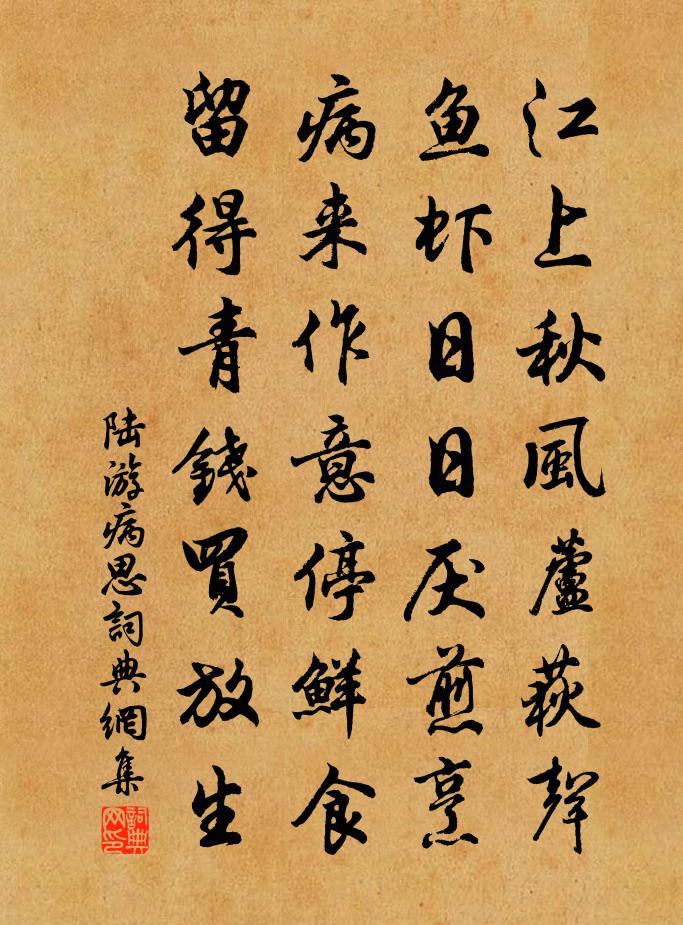 江上秋風蘆荻聲
鱼虾日日厌煎烹
病来作意停鮮食
留得青錢買放生
陆游病思詞典網集
詞典
网印